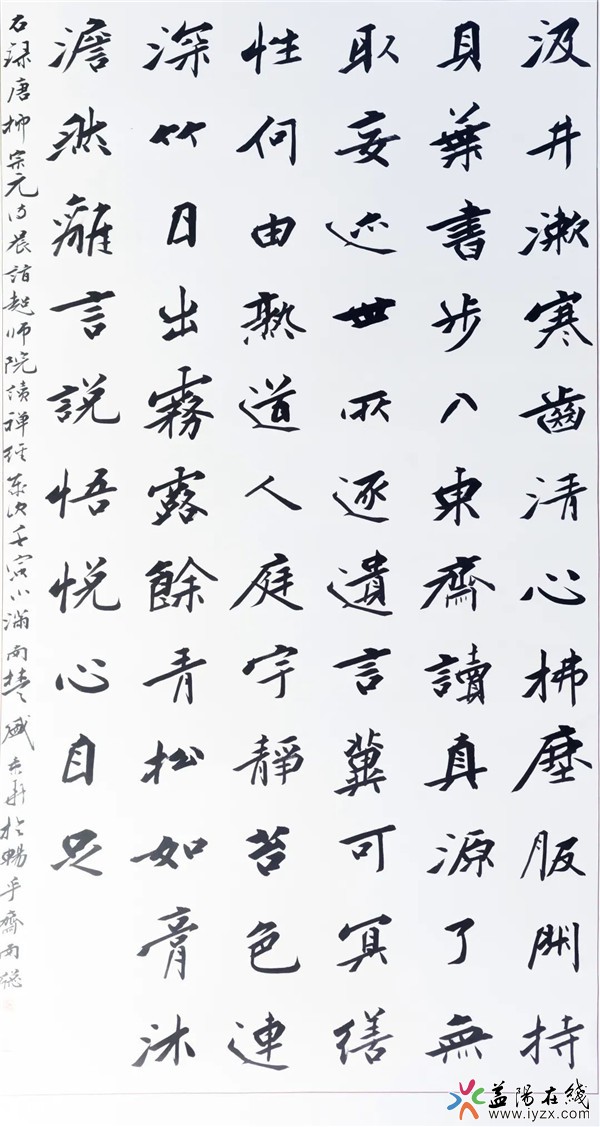 汲井漱寒齒清心拂塵服閑持
貝葉書步入東齋讀真源了無
取妄迹世所逐遺言冀可冥繕
性何由熟道人庭宇靜苔色連
深竹日出霧露餘青松如膏沐
澹然離言說悟悅心自足
右録唐柳宗元詩晨詣超師院讀禪經歲次壬寅小滿南楚盛軒於暢乎齋南窓
益阳在线
www.iyzx.com